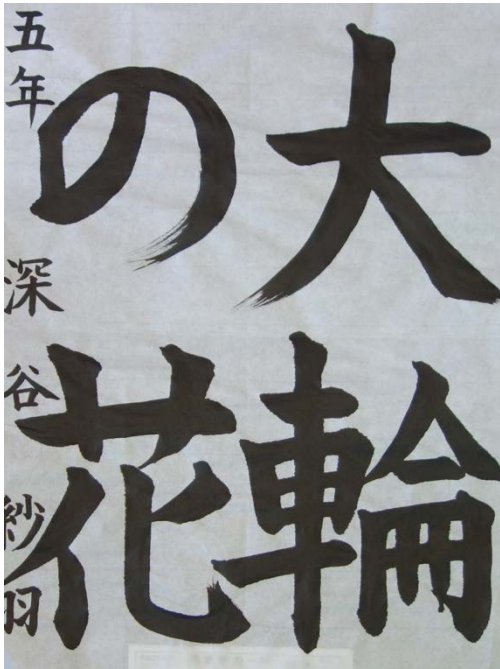 大輪
の花
五年 深谷紗羽